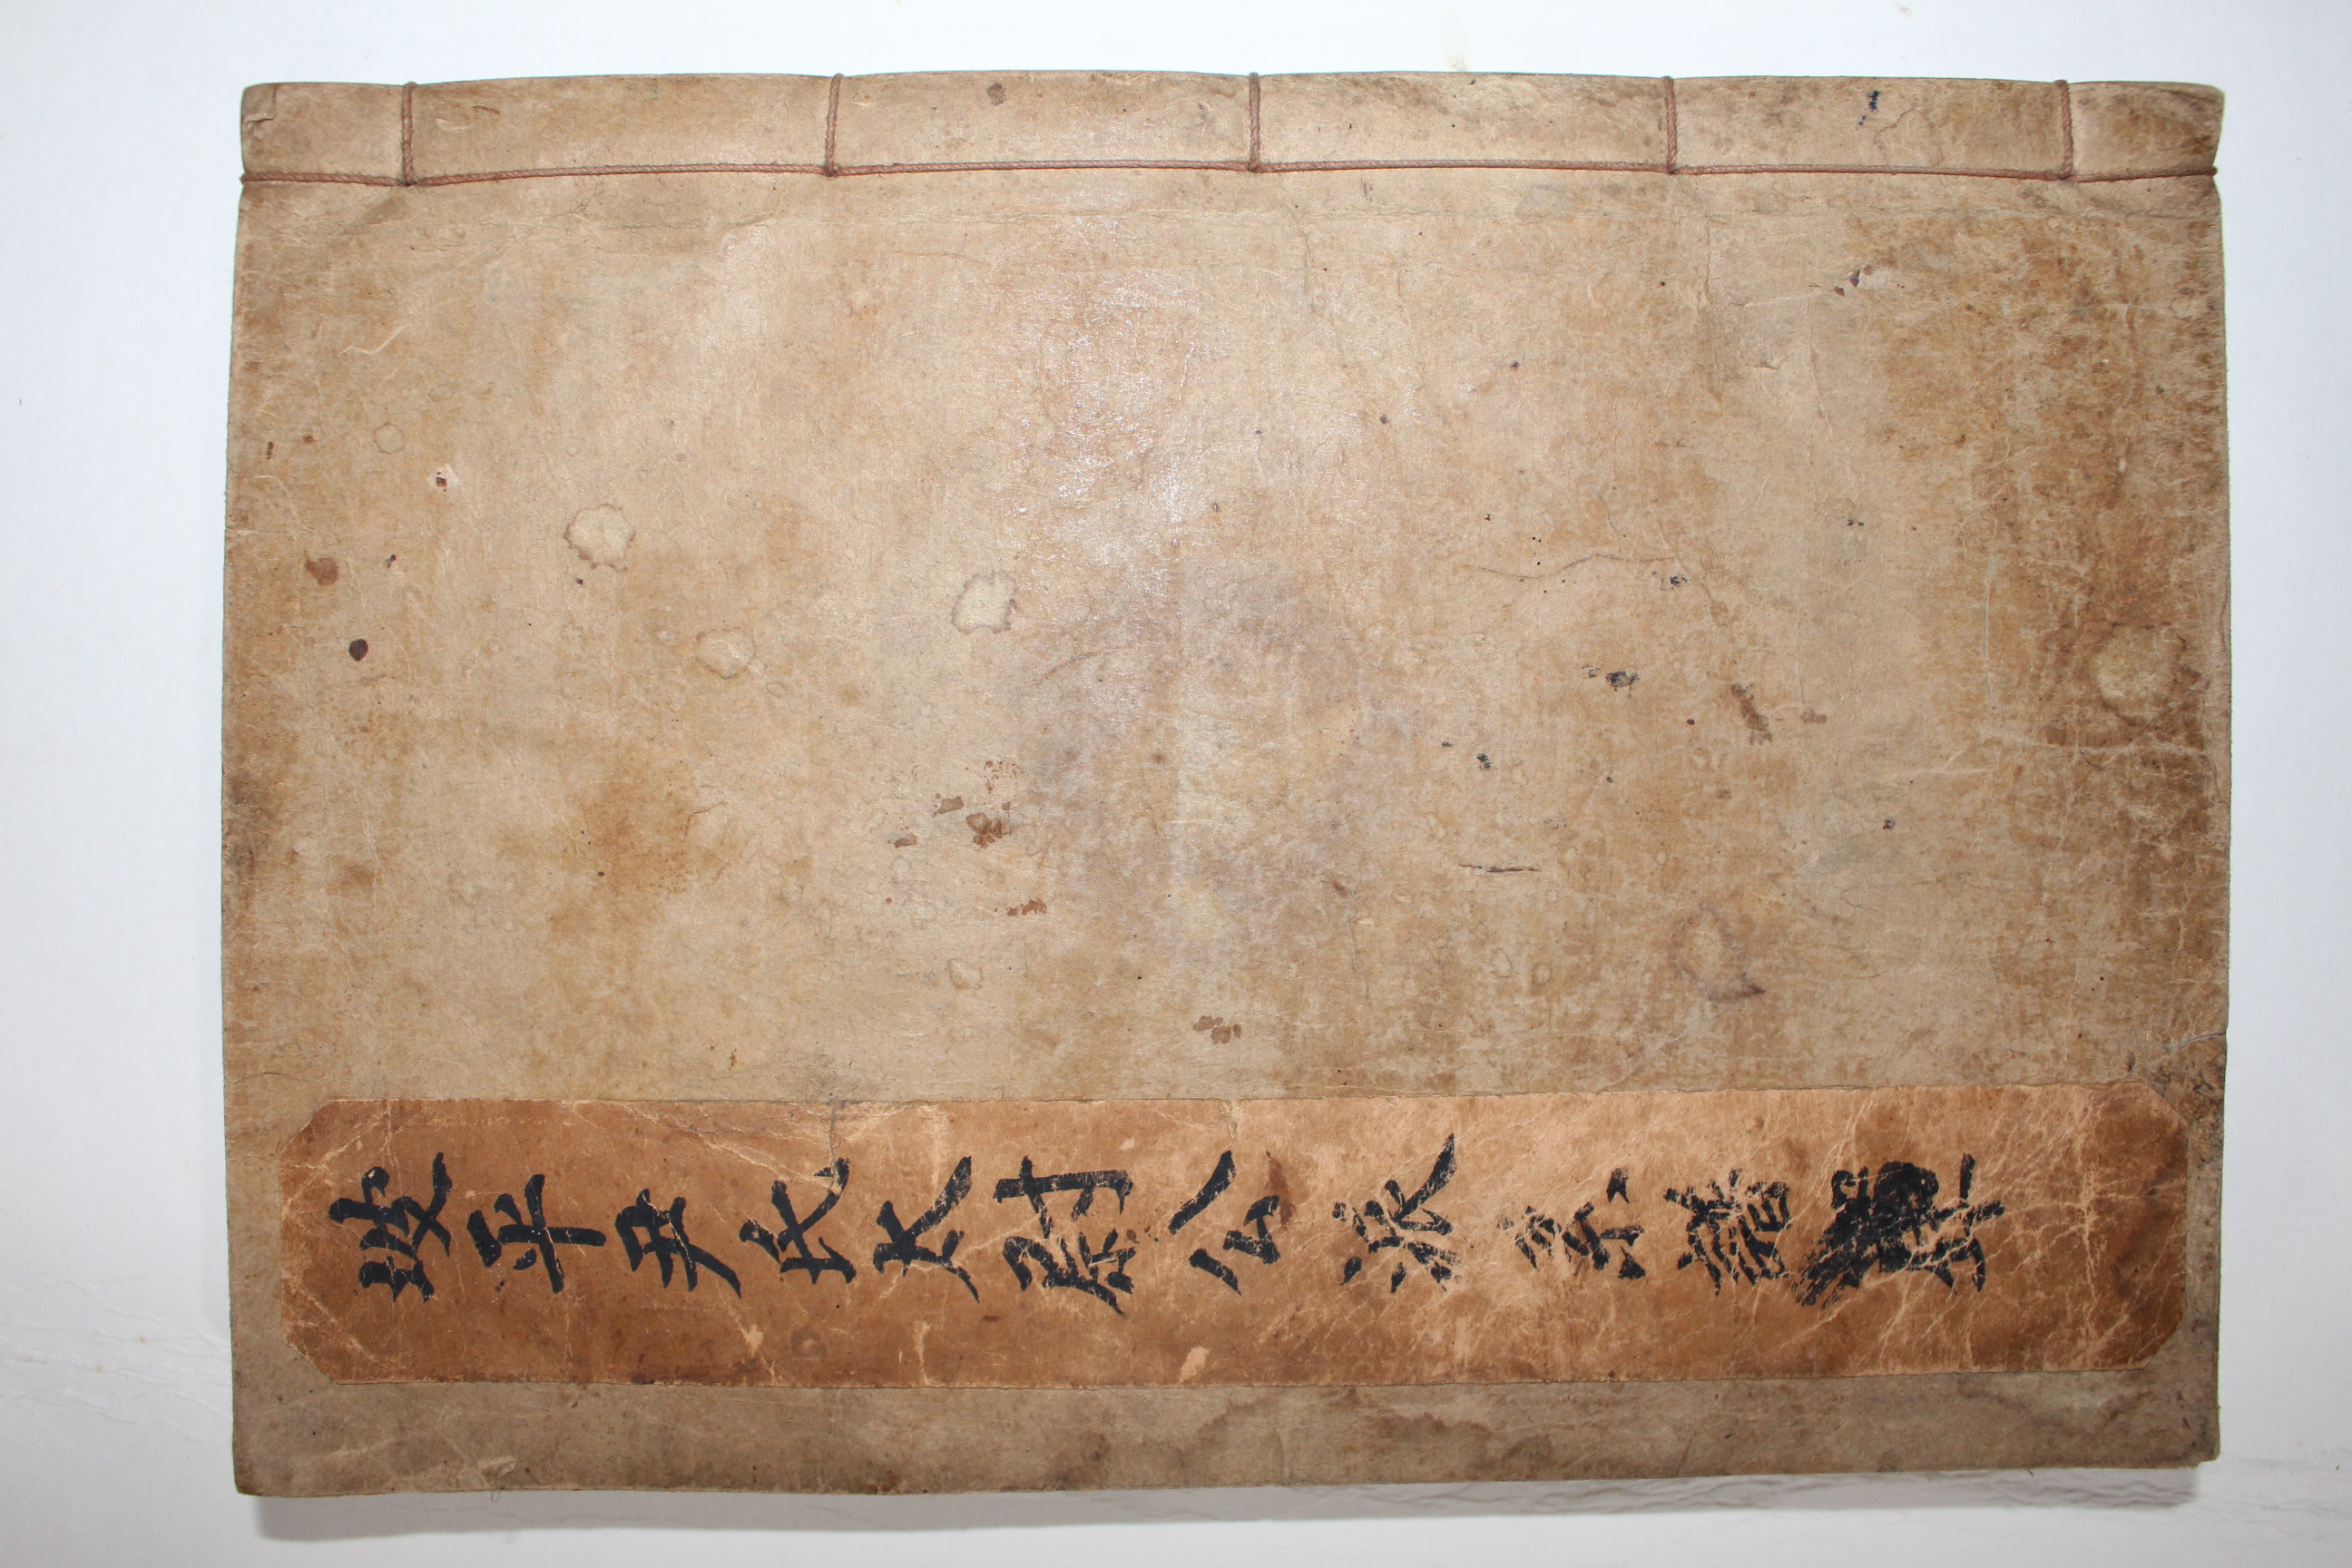 坡平尹氏太尉公派譜